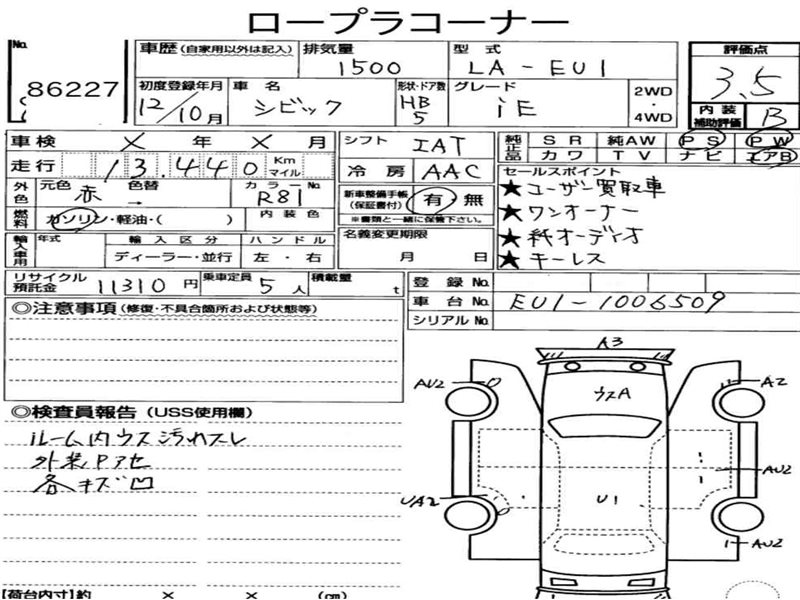 ロープラコーナー
No. 86227
車歴 (自家用以外は記入) 排気量 1500 型式 LA-EU1 評価点 3.5
初度登録年月 12/10月 車名 シビック 形状・ドア数 HB 5 グレード iE 2WD・4WD 内装補助評価 B
車検 × 年 × 月 シフト IAT 純正品 SR 純AW PS PW
カワ TV ナビ エアB
走行 13,440 Km マイル 冷房 AAC
外色 元色 赤 色替 → カラーNo. R81
新車整備手帳 (保証書付) 有・無
※書類と一緒に保管下さい。
燃料 ガソリン・軽油・( ) 内装色
輸入車用 年式 輸入区分 ディーラー・並行 ハンドル 左・右
名義変更期限 月 日
セールスポイント
★ユーザー買取車
★ワンオーナー
★純オーディオ
★キーレス
リサイクル預託金 11310円 乗車定員 5人 積載量 t
登録No.
車台No. EU1-1006509
シリアルNo.
◎注意事項 (修復・不具合箇所および状態等)
◎検査員報告 (USS使用欄)
ルーム内ウス汚れスレ
外装Pアセ
各キズ凹
A3
AU2
A2
ウスA
AU2
UA2
U1
AU2
【荷台内寸】約 × × (cm)